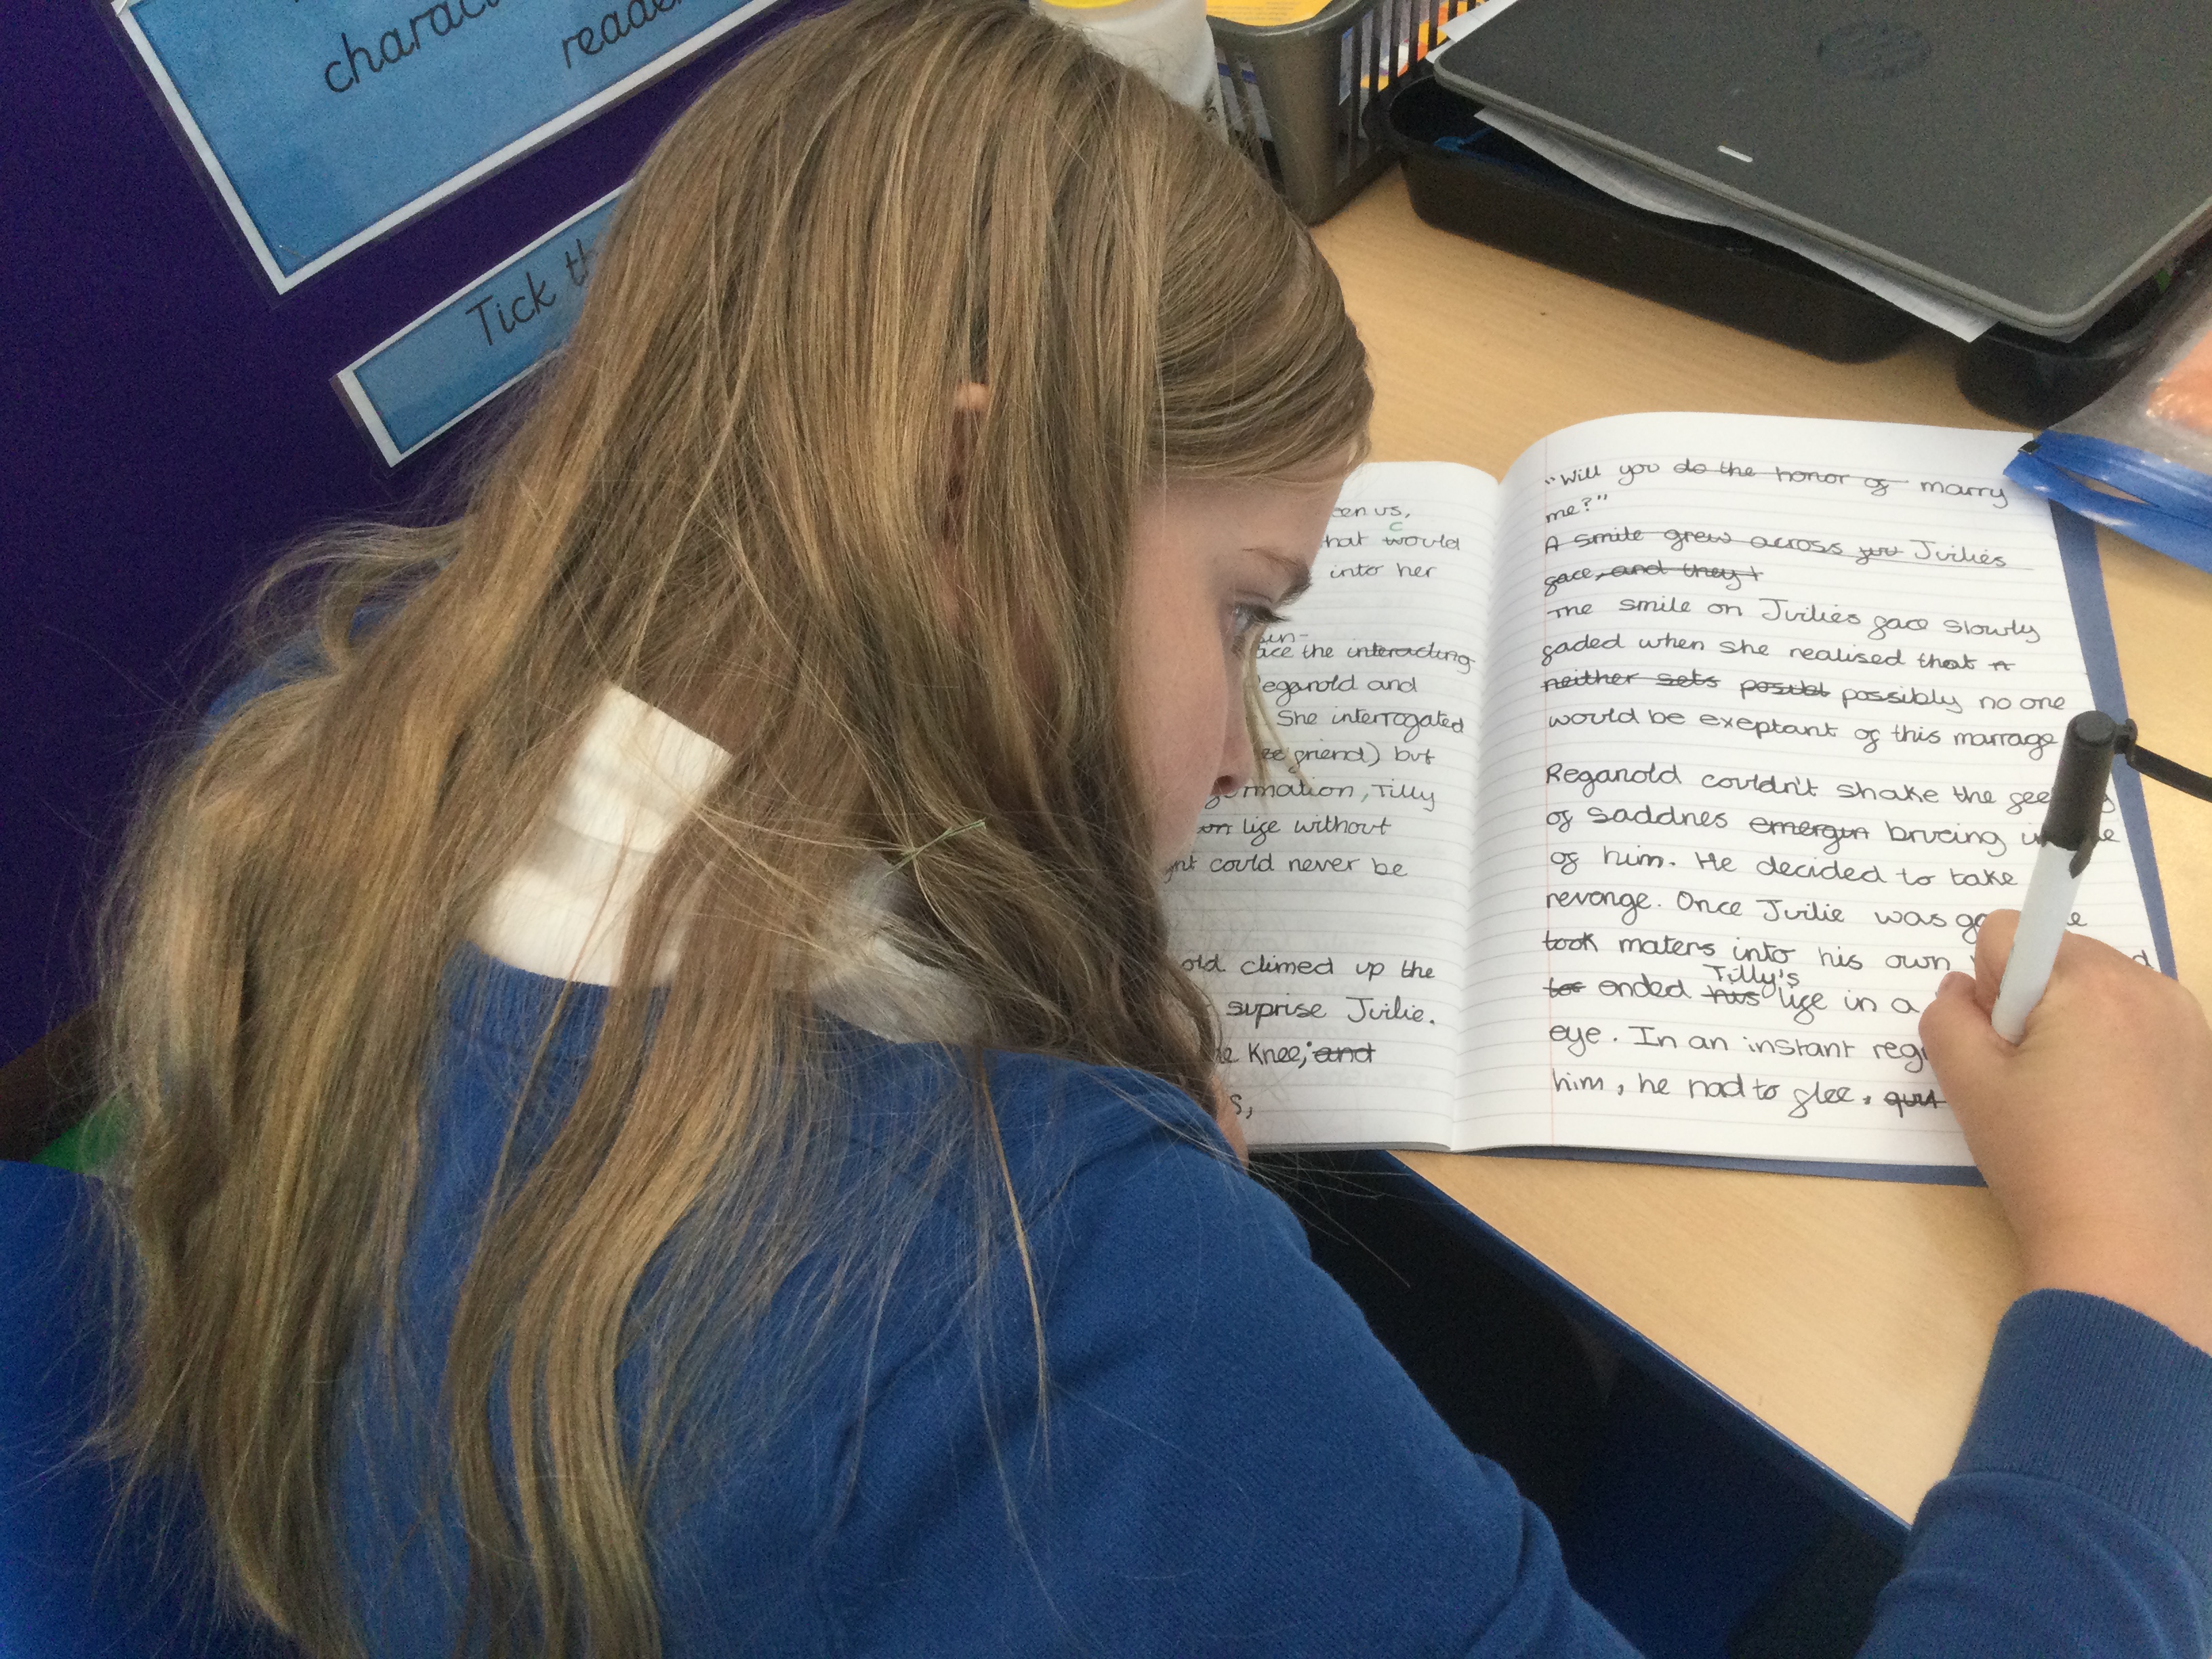 reade
Tick th
een us,
c
hat would
into her
the interacting
eganold and
She interrogated
friend) but
mation, Tilly
life without
could never be
old climed up the
suprise Juilie.
Knee; and
s,
"Will you do the honor of marry
me?"
A smile grew across Juilies
face, and they t
The smile on Juilies face slowly
faded when she realised that A
neither sets possibly no one
would be exeptant of this marrage
Reganold couldn't shake the fee
of saddnes emergin brueing
of him. He decided to take
revenge. Once Juilie was
took maters into his own
Tilly's
ended his life in a
eye. In an instant reg
him, he had to flee,